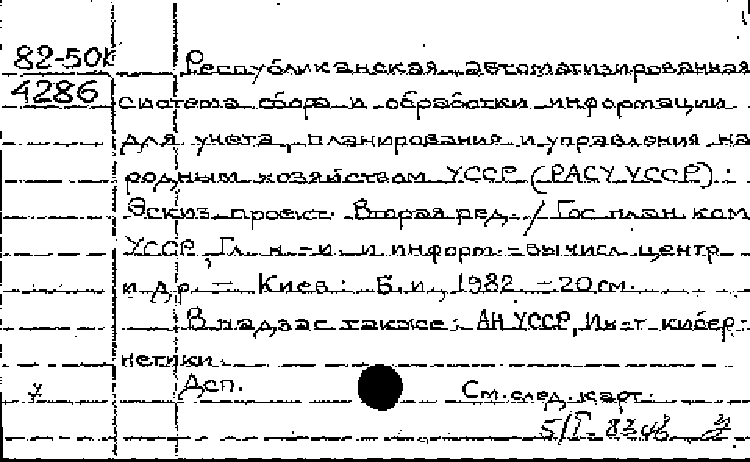 82-50К Республиканская автоматизированная
4286 система сбора и обработки информации
для учета, планирования и управления на
родным хозяйством УССР (РАСУ УССР):
Эскиз. проект. Вторая ред. / Гос план. ком
УССР, Гл. н.-и. и информ.-вычисл. центр
и др. - Киев: Б.и., 1982. - 20 см.
В надзаг. также: АН УССР, Ин-т кибер-
нетики.
Дсп. См. след. карт.
5/I-83